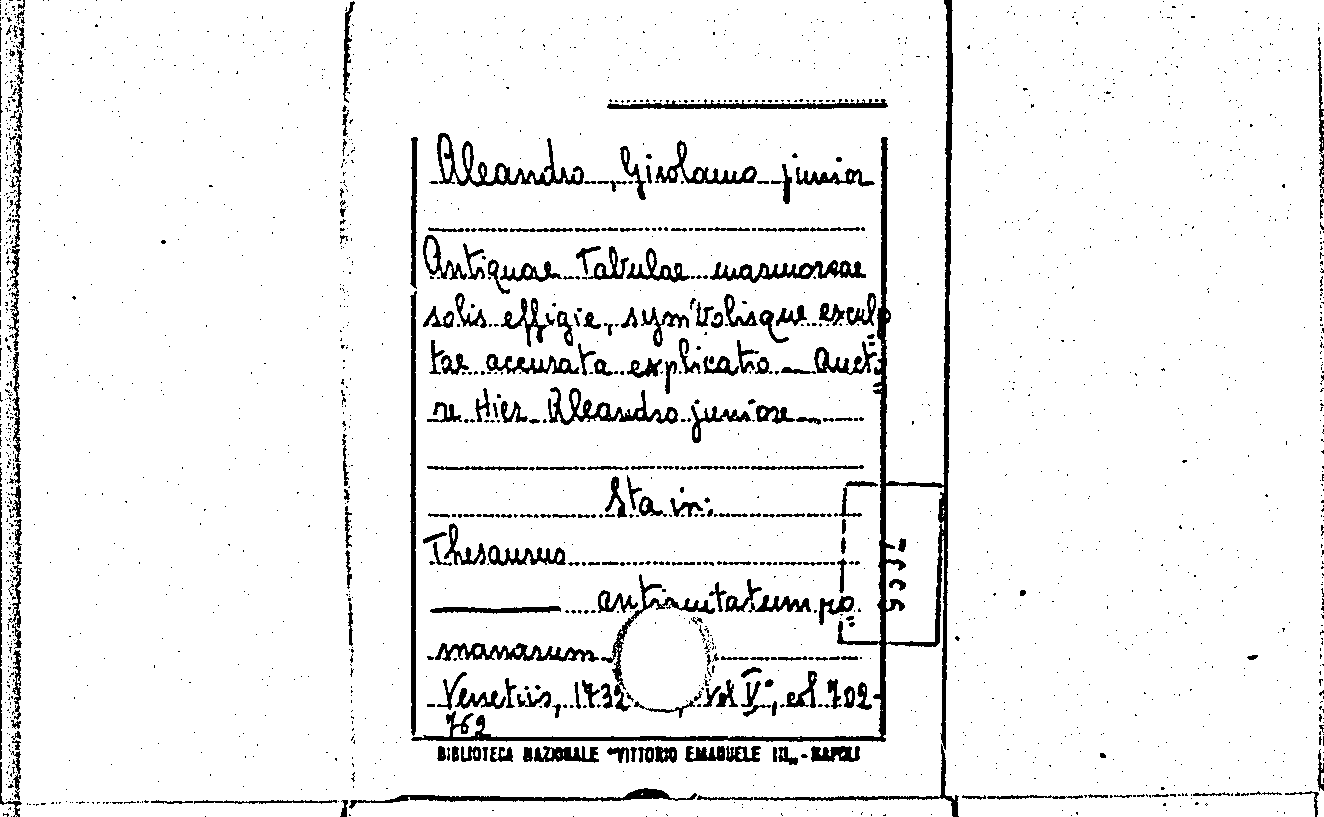 Aleandro, Girolamo junior
Antiquae Tabulae marmoreae
solis effigie, symbolisque exculp
tae accurata explicatio _ Aucto
re Hier. Aleandro juniore _
Sta in:
Thesaurus
antiquitatum ro
manarum
Venetiis, 1732, vol V°, col 702-
762
BIBLIOTECA NAZIONALE "VITTORIO EMANUELE III„ - NAPOLI